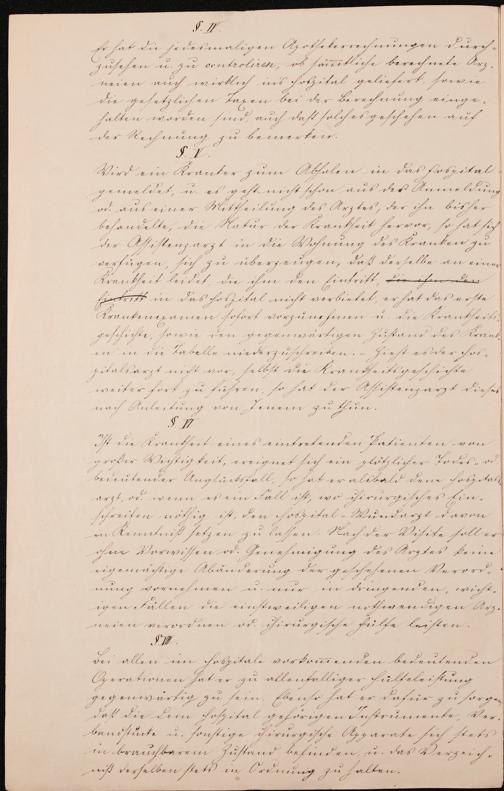 § IV.
Er hat die jedesmaligen Apothekerrechnungen durch-
zusehen u. zu controliren, ob sämtliche berechnete Arz-
neien auch wirklich ins Hospital geliefert, sowie
die gesetzlichen Taxen bei der Berechnung einge-
halten worden sind auch daß solches geschehen auf
der Rechnung zu bemerken.
§ V.
Wird ein Kranker zum Abholen in das Hospital
gemeldet, u. es geht nicht schon aus der Anmeldung
od. aus einer Mittheilung des Arztes, der ihn bisher
behandelte, die Natur der Krankheit hervor, so hat sich
der Assistenzarzt in die Wohnung des Kranken zu
verfügen, sich zu überzeugen, daß derselbe an einer
Krankheit leidet, die ihm den Eintritt, die ihm den
Eintritt in das Hospital nicht verbietet, er hat das erste
Krankenexamen sofort vorzunehmen u. die Krankheits-
geschichte, sowie den gegenwärtigen Zustand des Krank-
en in die Tabelle niederzuschreiben. – Zieht es der Hos-
pitalarzt nicht vor, selbst die Krankheitsgeschichte
weiter fort zu führen, so hat der Assistenzarzt dieses
nach Anleitung von Jenem zu thun.
§ VI
Ist die Krankheit eines eintretenden Patienten von
großer Wichtigkeit, ereignet sich ein plötzlicher Todes- od.
bedeutender Unglücksfall, so hat er alsbald dem Hospital-
arzt, od. wenn es ein Fall ist, wo chirurgisches Ein-
schreiten nöthig ist, den Hospital-Wundarzt davon
in Kenntniß setzen zu lassen. Nach der Visite soll er
ohne Vorwissen od. Genehmigung des Arztes keine
eigenmächtige Abänderung der geschehenen Verord-
nung vornehmen u. nur in dringenden, wicht-
igen Fällen die einstweiligen nothwendigen Arz-
neien verordnen od. chirurgische Hülfe leisten.
§ VII.
Bei allen im Hospitale vorkommenden bedeutenden
Operationen hat er zu allenfallsiger Hülfeleistung
gegenwärtig zu sein. Ebenso hat er dafür zu sorgen
daß die dem Hospital gehörigen Instrumente, Ver-
bandstücke u. sonstige chirurgische Apparate sich stets
in brauchbarem Zustand befinden, u. das Verzeich-
niß derselben stets in Ordnung zu halten.